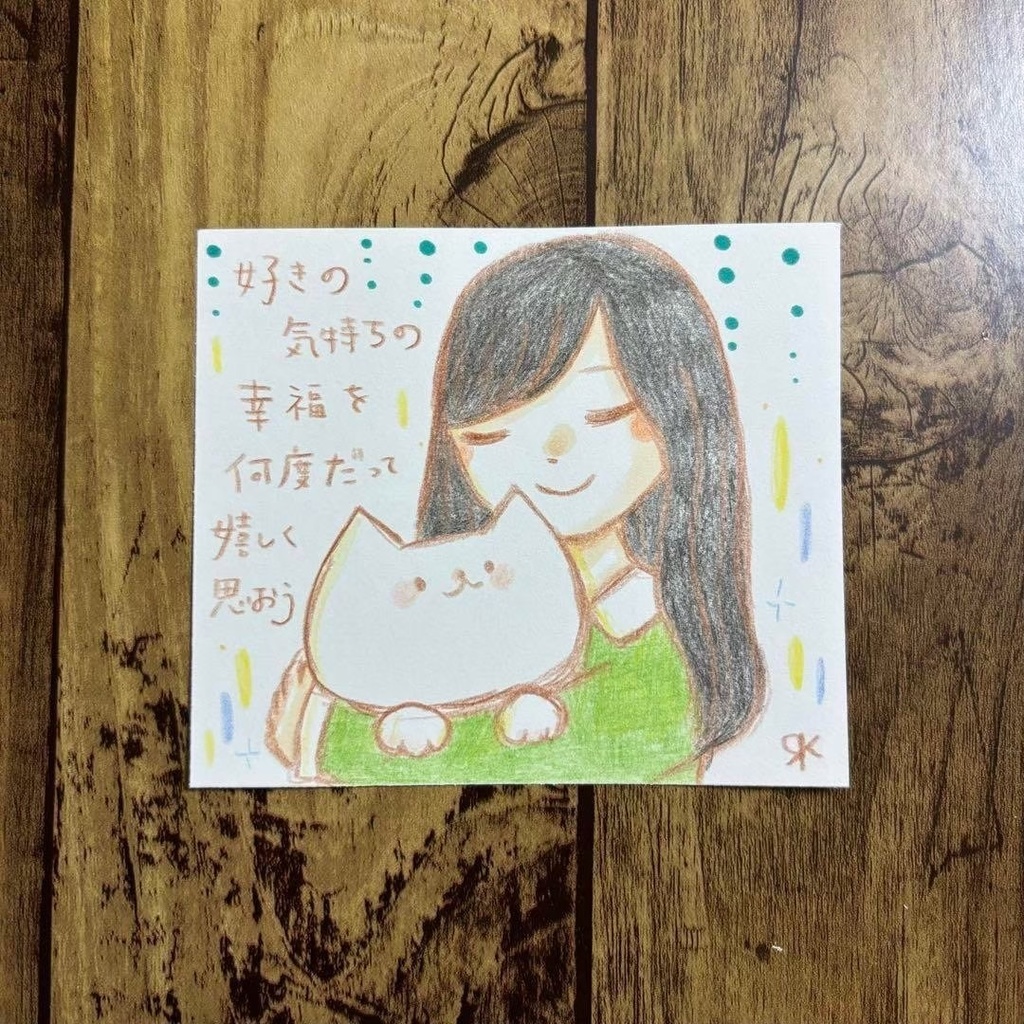 好きの
気持ちの
幸福を
何度だって
嬉しく
思おう
RK